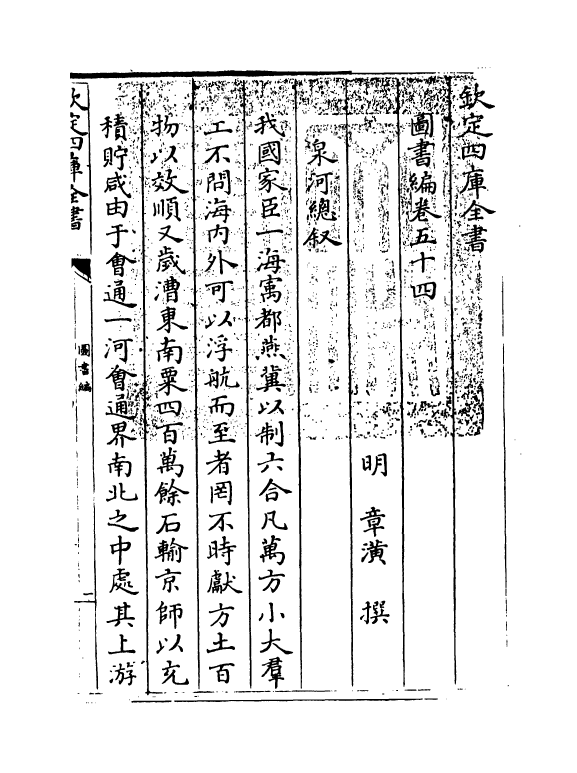 欽定四庫全書
圖書編卷五十四
明 章潢 撰
泉河總叙
我國家臣一海寓都燕冀以制六合凡萬方小大羣
工不問海内外可以浮航而至者罔不時獻方土百
物以效順又歲漕東南粟四百萬餘石輸京師以充
積貯咸由于會通一河會通界南北之中處其上游
欽定四庫全書
圖書編
一